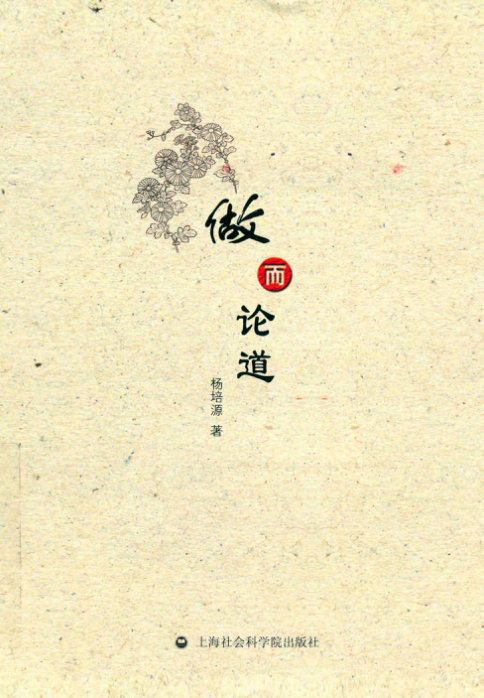 做
而
论
道
杨培源 著
上海社会科学院出版社